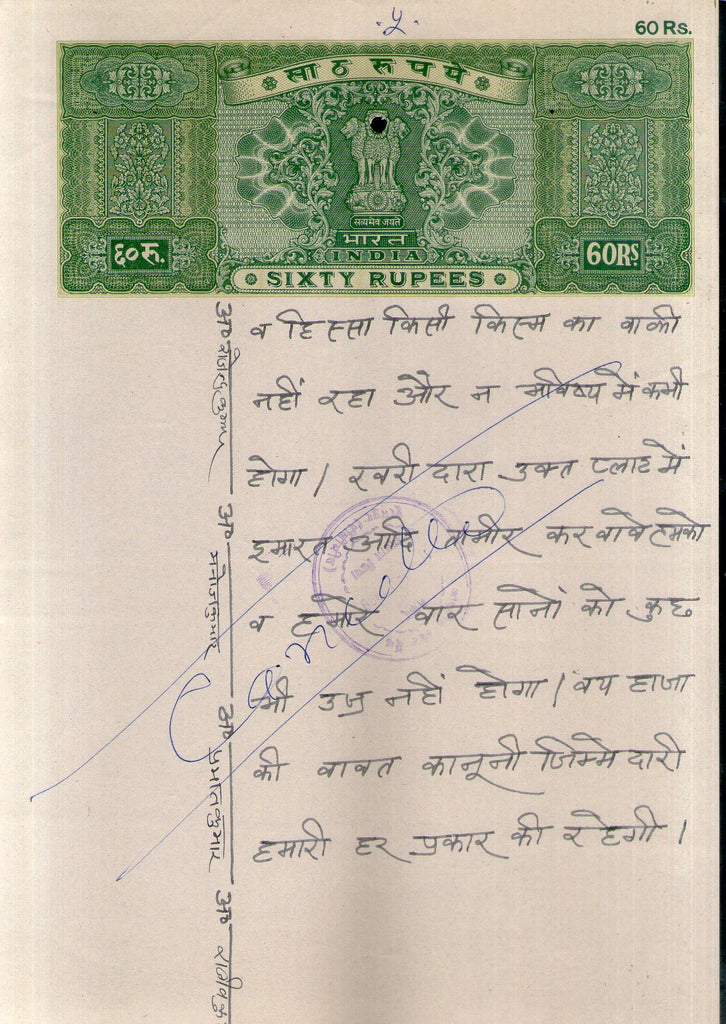 ५
60 Rs.
साठ रुपये
सत्यमेव जयते
भारत
INDIA
६० रु.
60 Rs
SIXTY RUPEES
व हिस्सा किसी किस्म का वाकी
नहीं रहा और न भविष्य में कभी
होगा । खरीदारा उक्त प्लाट में
इमारत आदि तामीर करवावे हमको
व हमारे वारसानों को कुछ
भी उजु नहीं होगा । वय हाजा
की वावत कानूनी जिम्मेदारी
हमारी हर प्रकार की रहेगी ।
Cancelled
अ०
अ० मनोजकुमार
अ० प्रभातकुमार
अ०